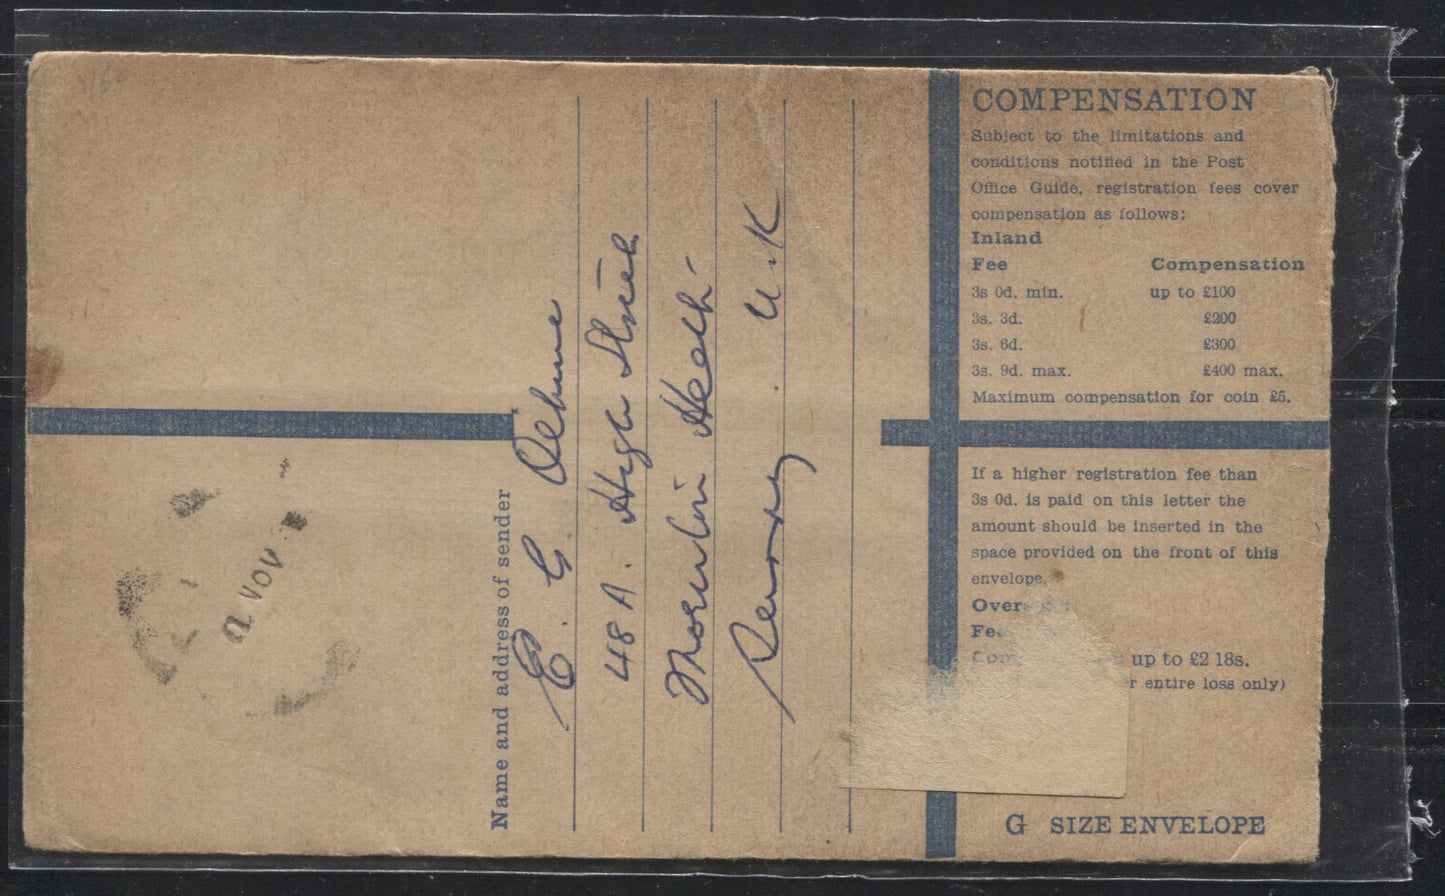 COMPENSATION
Subject to the limitations and
conditions notified in the Post
Office Guide, registration fees cover
compensation as follows:
Inland
Fee Compensation
3s 0d. min. up to £100
3s. 3d. £200
3s. 6d. £300
3s. 9d. max. £400 max.
Maximum compensation for coin £5.
If a higher registration fee than
3s 0d. is paid on this letter the
amount should be inserted in the
space provided on the front of this
envelope.
up to £2 18s.
entire loss only)
G SIZE ENVELOPE
Name and address of sender
E. G.
48 A. High Street
Heath
U.K
NOV